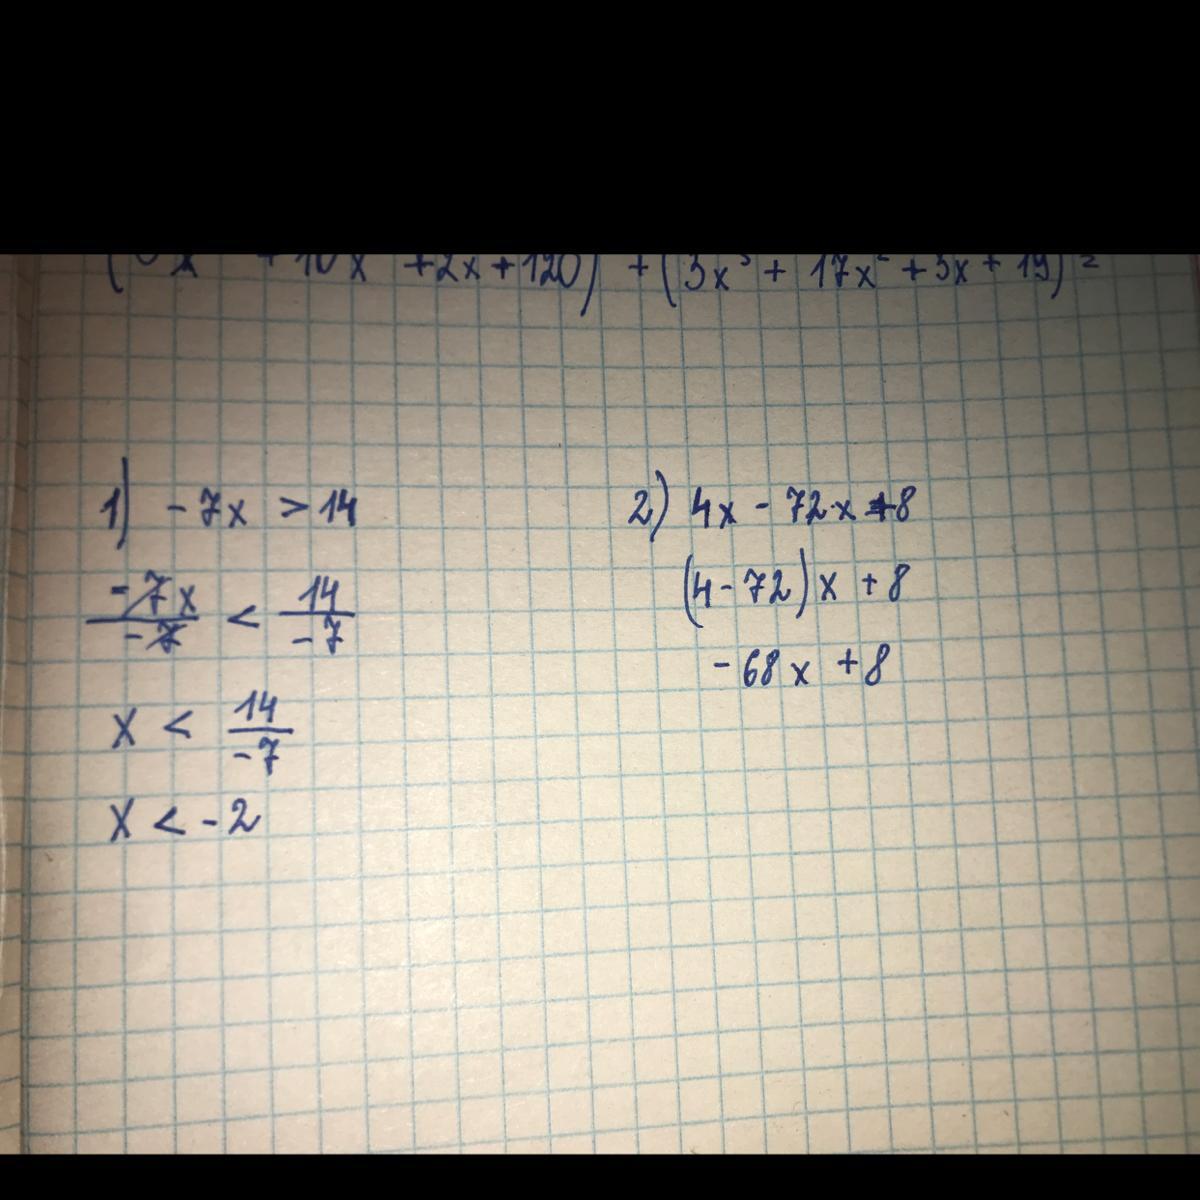 + 10x + 2x + 120) + (3x³ + 17x² + 3x + 19) =
1) -7x > 14
-7x/-7 < 14/-7
x < 14/-7
x < -2
2) 4x - 72x + 8
(4 - 72)x + 8
-68x + 8